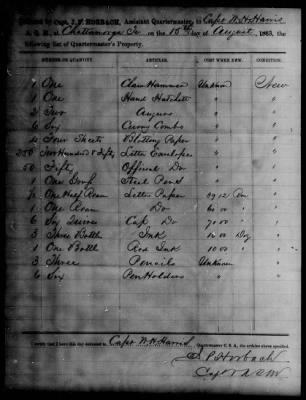 Delivered by Capt. J. P. HORBACH, Assistant Quartermaster, to Capt W. H. Harris
A. Q. M., at Chattanooga Te on the 15th day of August, 1863, the
following list of Quartermaster's Property.
NUMBER OR QUANTITY. ARTICLES. COST WHEN NEW. CONDITION.
1 One Claw Hammer Unknown New
1 One Hand Hatchett " "
2 Two Augurs " "
6 Six Curry Combs " "
4 Four Sheets Blotting Paper " "
250 Two Hundred & Fifty Letter Envelopes " "
50 Fifty Official Do " "
1 One Steel Pens " "
½ One Half Ream Letter Paper "
1 One Ream Do 60 00 "
6 Six Quires Cap Do 70 00 "
3 Three Bottles Ink "
1 One Bottle Red Ink 10 00 "
3 Three Pencils Unknown "
6 Six Pen Holders " "
I certify that I have this day delivered to Capt W. H. Harris, Quartermaster C. S. A., the articles above specified.
J. P. Horbach
Capt & A Q M